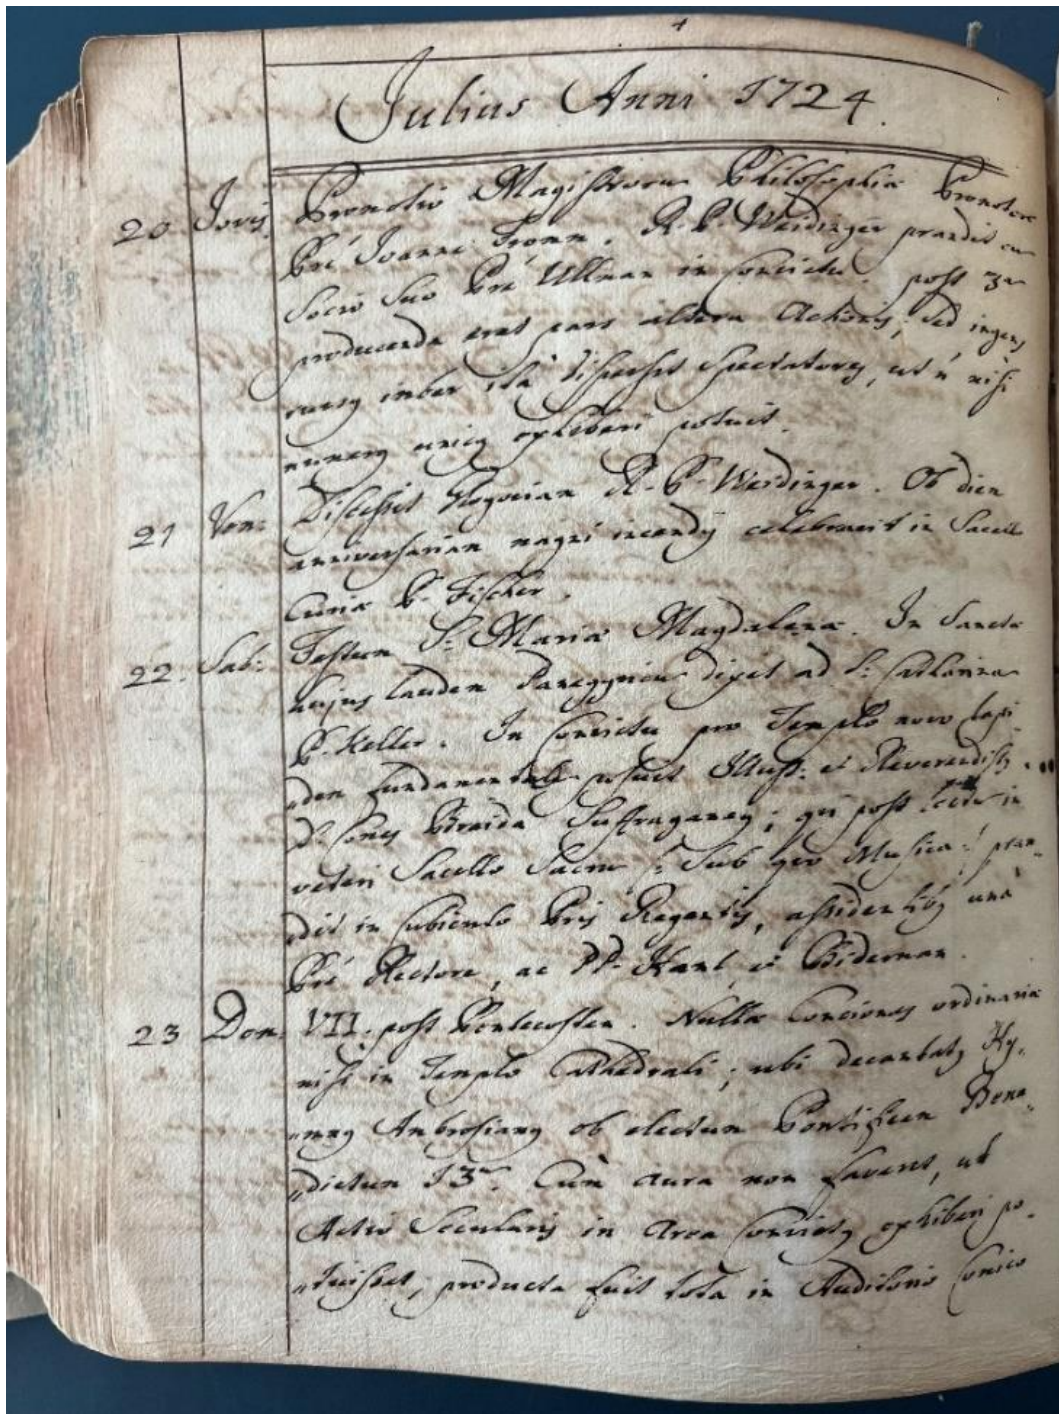 Julius Anni 1724.
20 Jovis Promotio Magistrorum Philosophiæ Promotore
Pre Joanne Fromm. R. P. Weidinger prandit cum
Socio Suo Pre Ullman in Convictu. post 3am
producenda erat pars altera Actionis; sed ingens
rursus imber ita dispersit Spectatores, ut nisi
numerus unicus exhiberi potuit.
21 Ven: Discessit R. P. Weidinger. Ob diem
anniversarium magni incendij celebravit in Sacello
Curiæ P. Fischer.
22. Sab: Festum S: Mariæ Magdalenæ. In Sanctæ
hujus laudem dixit ad S:
P. Keller. In Convictu pro Templo novo lapi-
dem fundamentale posuit Illust: et Reverendiss9
D. Suffraganeus; qui post in
veteri Sacello Sacrum /: Sub quo Musica :/ pran-
dit in Cubiculo Pris Regentis, assidentibus unà
Pre Rectore, ac PP. et Biderman.
23 Dom. VII. post Pentecosten. Nullæ Conciones ordinariæ
nisi in Templo Cathedrali; ubi decantatus Hy-
mnus Ambrosianus ob electum Pontificem Bene-
dictum 13um. Cum aura non faveret, ut
Actio Secularis in Area Convictus exhiberi po-
tuisset, producta fuit tota in Auditorio Comico